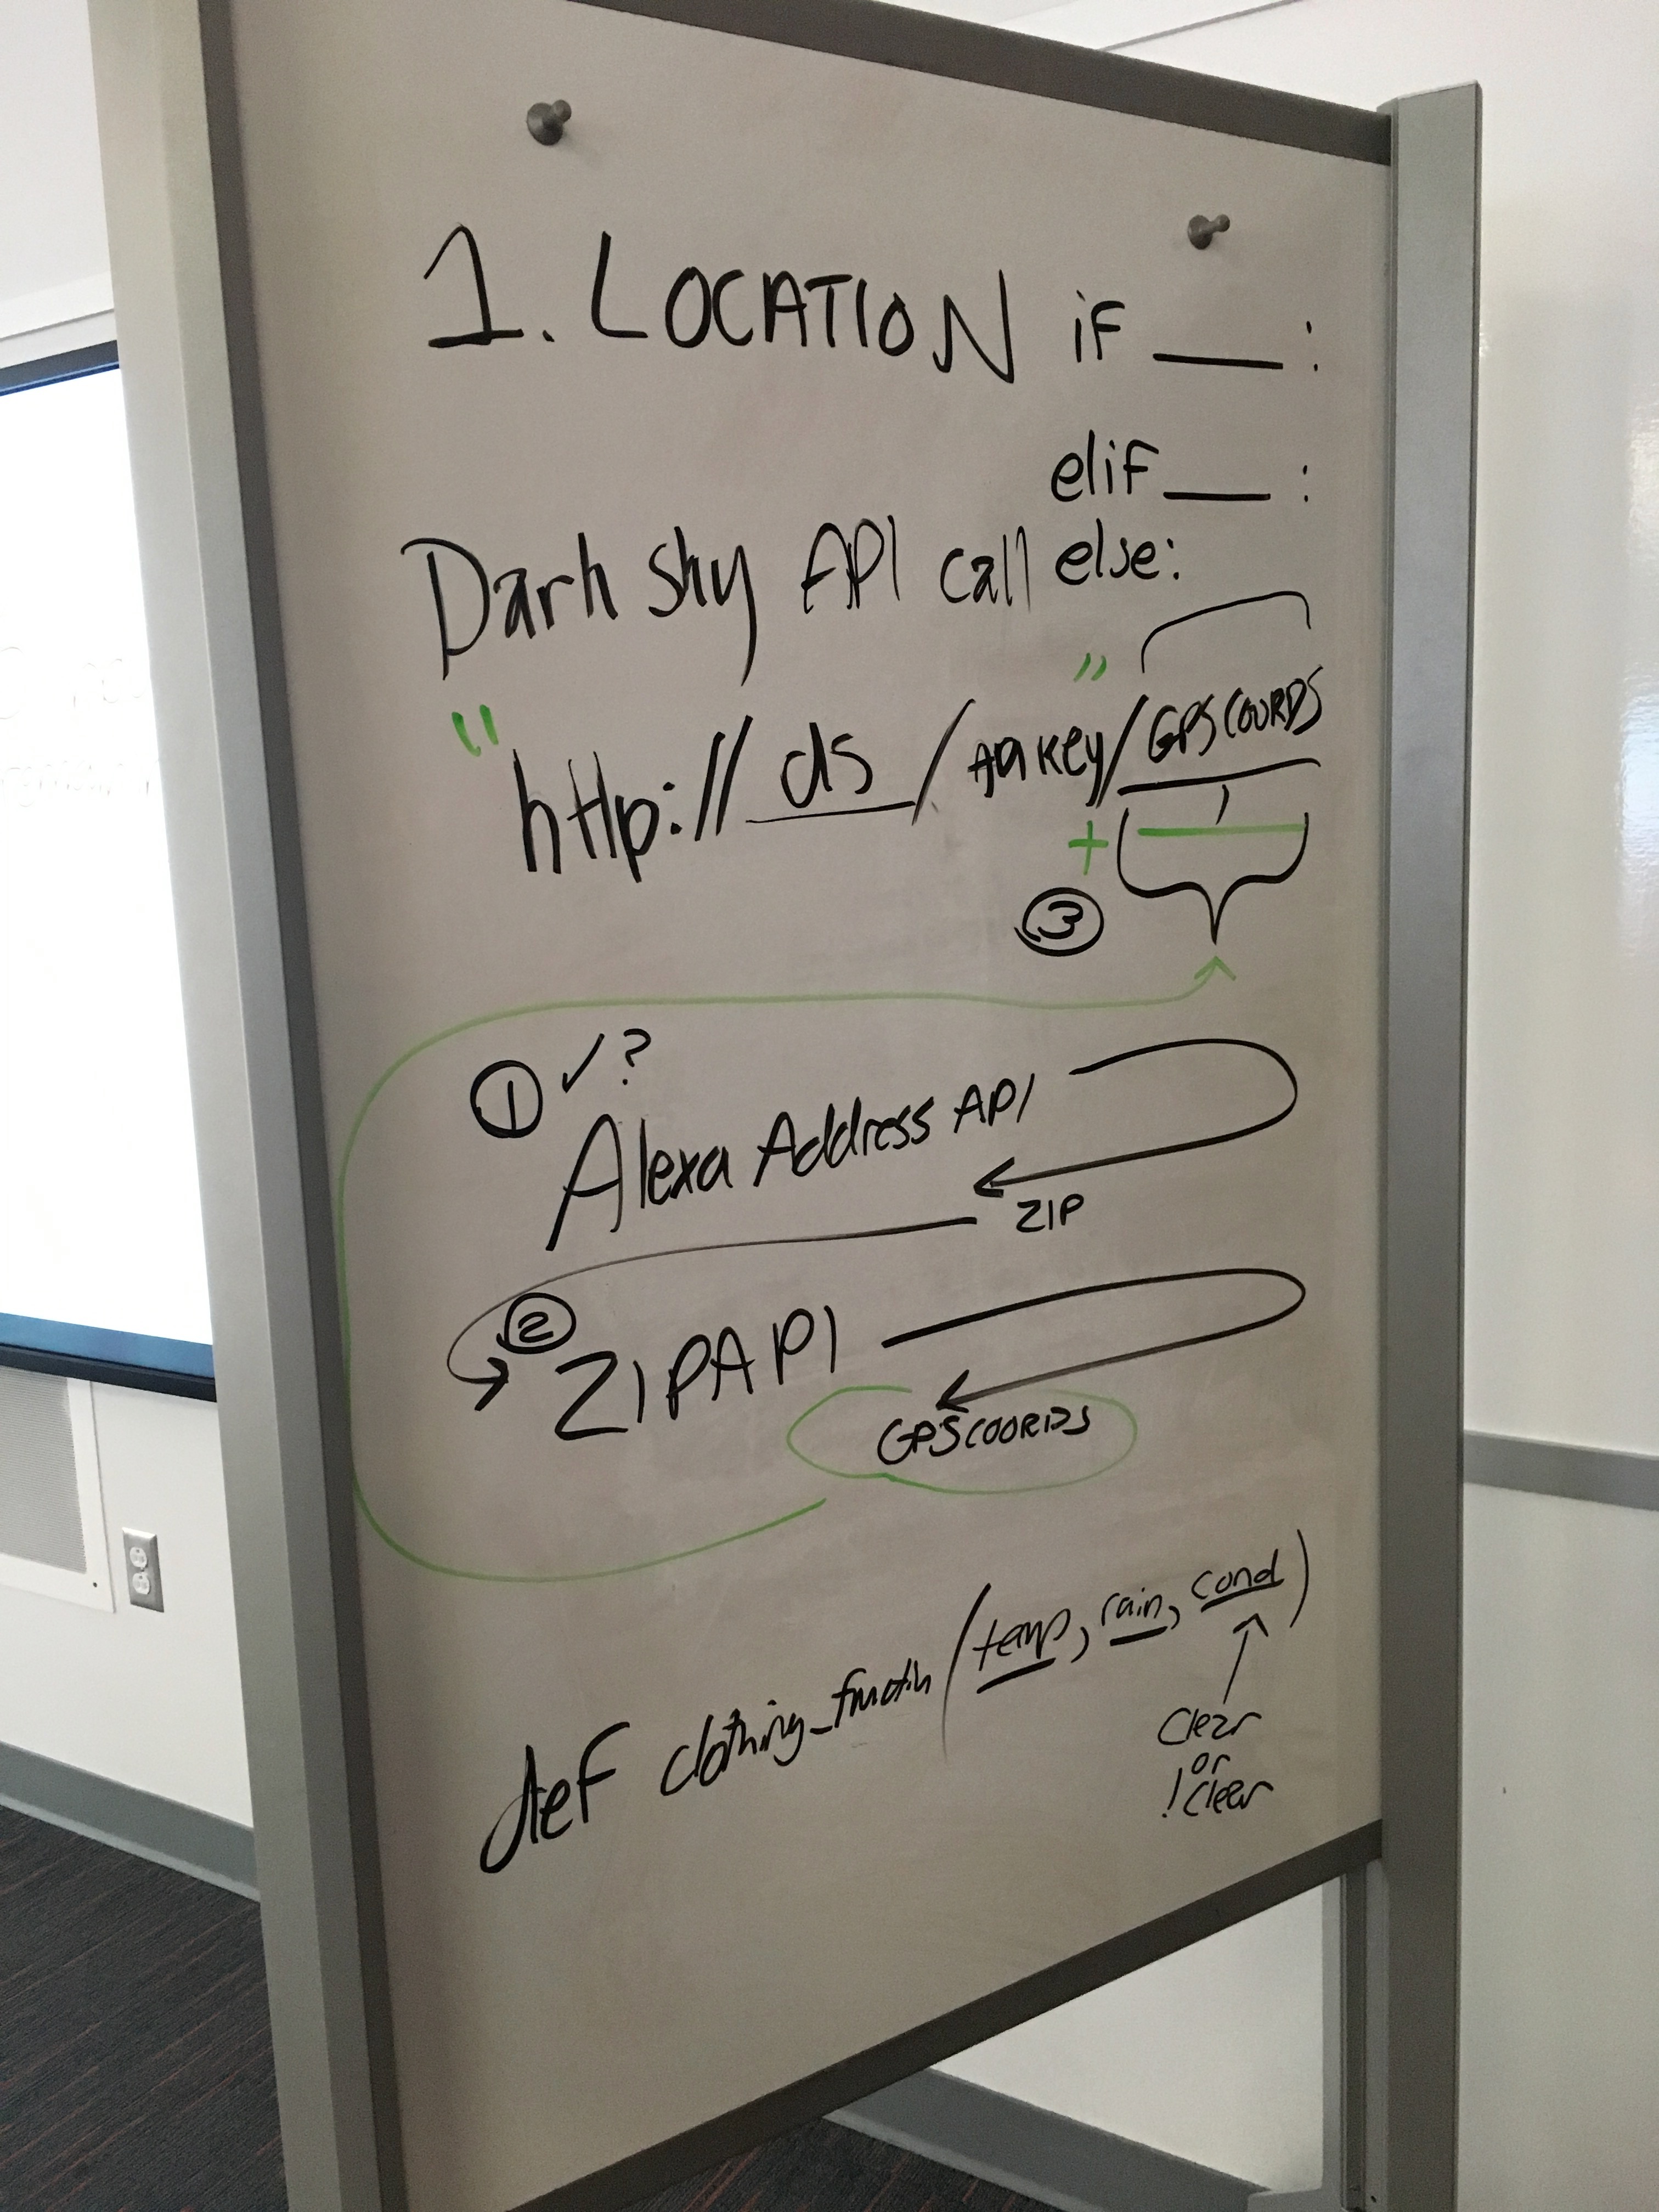 1. LOCATION if ___ :
elif ___ :
Dark sky API call else:
"http://ds/API Key"/GPS COORDS
+ ___,___
③
① ✓?
Alexa Address API
ZIP
② ZIPAPI
GPSCOORDS
def clothing_ (temp, rain, cond)
Clear
or
!Clear